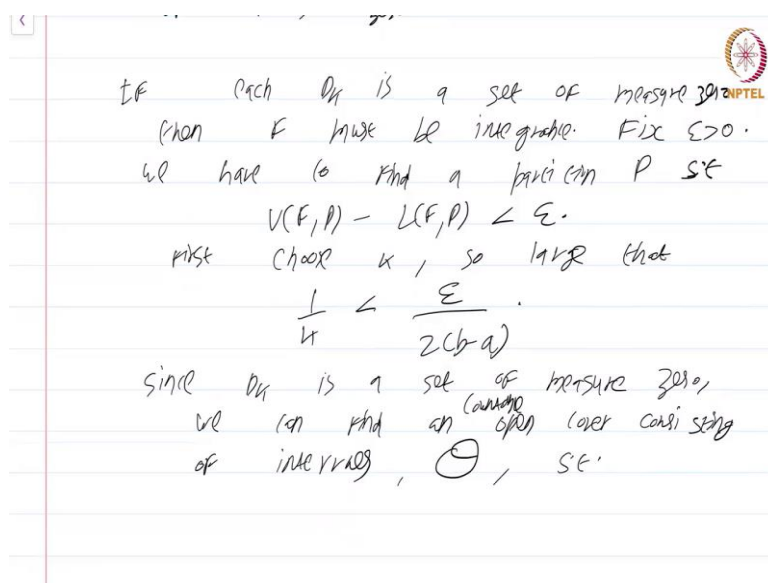 IF each D_K is a set of measure zero
NPTEL
then F must be integrable. Fix ε>0.
We have to find a partition P st
U(F,P) - L(F,P) < ε.
First choose K, so large that
1/K < ε/2(b-a) .
Since D_K is a set of measure zero,
countable
we can find an open cover consisting
of intervals, Θ, st.